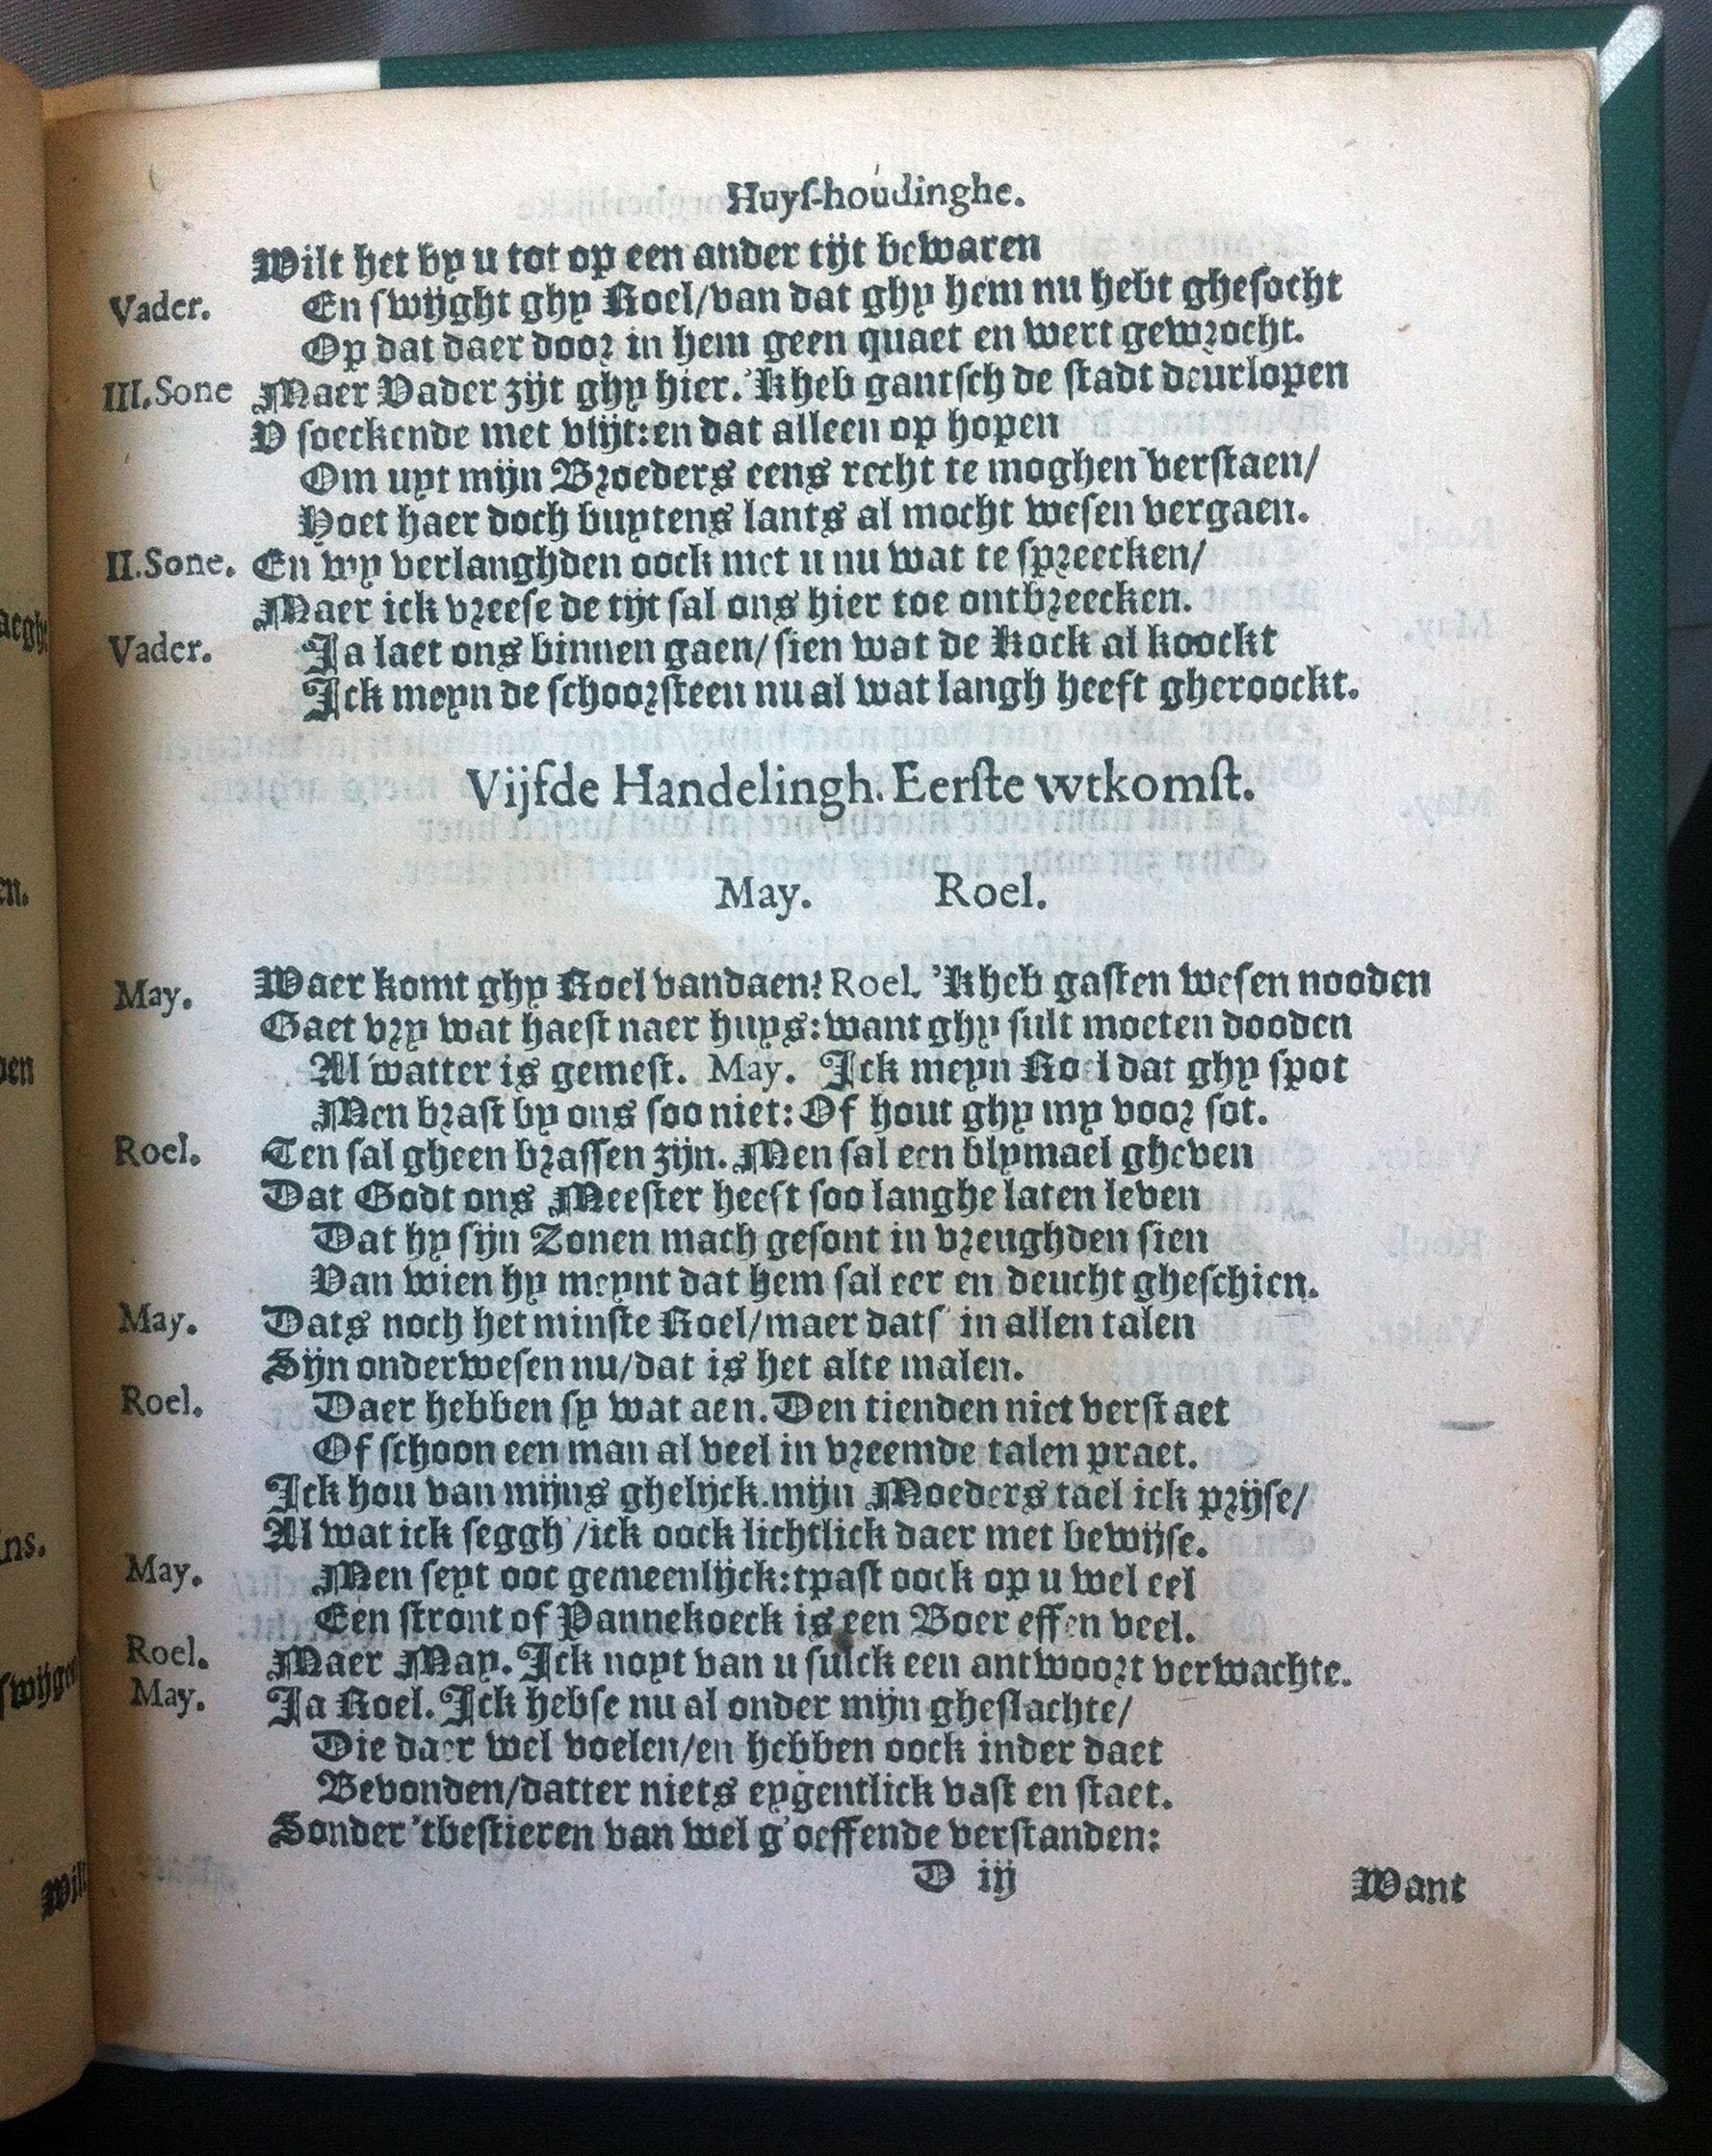 Huyſ-houdinghe.
Wilt het by u tot op een ander tijt bewaren
Vader. En ſwijght ghy Roel/van dat ghy hem nu hebt gheſocht
Op dat daer door in hem geen quaet en wert gewrocht.
III.Sone Maer Vader zijt ghy hier. 'Kheb gantſch de ſtadt deurlopen
V ſoeckende met vlijt: en dat alleen op hopen
Om uyt mijn Broeders eens recht te moghen verſtaen/
Hoet haer doch buytens lants al mocht weſen vergaen.
II.Sone. En wy verlanghden oock met u nu wat te ſpreecken/
Maer ick vreeſe de tijt ſal ons hier toe ontbreecken.
Vader. Ja laet ons binnen gaen/ ſien wat de Kock al koockt
Ick meyn de ſchoorſteen nu al wat langh heeft gheroockt.
Vijfde Handelingh. Eerſte wtkomſt.
May. Roel.
May. Waer komt ghy Roel vandaen? Roel. 'Kheb gaſten weſen nooden
Gaet vry wat haeſt naer huys: want ghy ſult moeten dooden
Al watter is gemeſt. May. Ick meyn Roel dat ghy ſpot
Men braſt by ons ſoo niet: Of hout ghy my voor ſot.
Roel. Ten ſal gheen braſſen zijn. Men ſal een blymael gheven
Dat Godt ons Meeſter heeft ſoo langhe laten leven
Dat hy ſijn Zonen mach geſont in vreughden ſien
Van wien hy meynt dat hem ſal eer en deucht gheſchien.
May. Dats noch het minſte Roel/maer datſ' in allen talen
Sijn onderweſen nu/dat is het alte malen.
Roel. Daer hebben ſy wat aen. Den tienden niet verſtaet
Of ſchoon een man al veel in vreemde talen praet.
Ick hou van mijns ghelijck. mijn Moeders tael ick prijſe/
Al wat ick ſeggh'/ick oock lichtlick daer met bewijſe.
May. Men ſeyt ooc gemeenlijck: tpaſt oock op u wel eel
Een ſtront of Pannekoeck is een Boer effen veel.
Roel. Maer May. Ick noyt van u ſulck een antwoort verwachte.
May. Ja Roel. Ick hebſe nu al onder mijn gheſlachte/
Die daer wel voelen/en hebben oock inder daet
Bevonden/datter niets eygentlick vaſt en ſtaet.
Sonder 'tbeſtieren van wel g'oeffende verſtanden:
D iij
Want